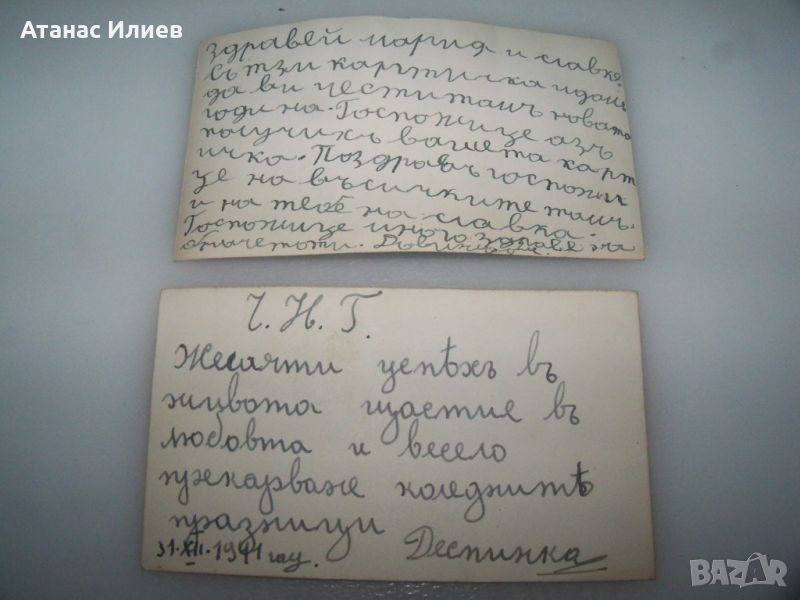 Атанас Илиев
здравей мария и славке.
Съ тзи картичка идамъ
да ви честитамъ новата
година. Госпожице азъ
получихъ вашета карт
ичка. Поздравъ госпожи
це на въсичките тамъ.
и на тебе на славка.
Госпожице много здраве на
Ч. Н. Г.
Желаяти успѣхъ въ
живота щастие въ
любовта и весело
прекарване коледнитѣ
празници
31·XII·1941 год. Деспинка
BAZAR